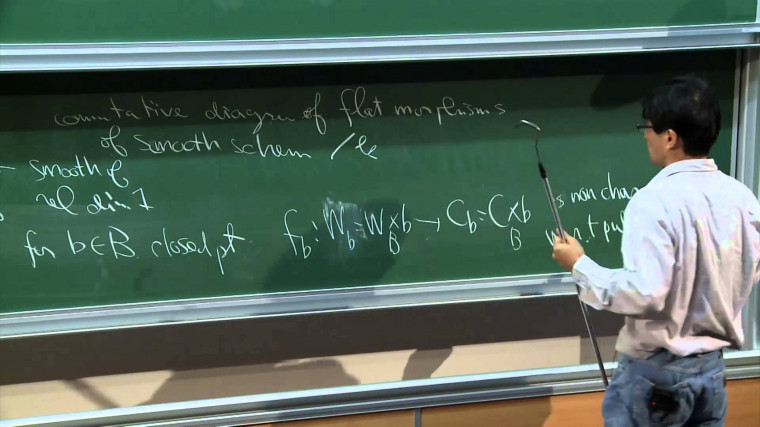 commutative diagram of flat morphisms
of smooth schem /k
smooth of
rel dim 1
for b∈B closed pt f_b: W_b = W ×_B b → C_b = C ×_B b is non cha
w.r.t pul